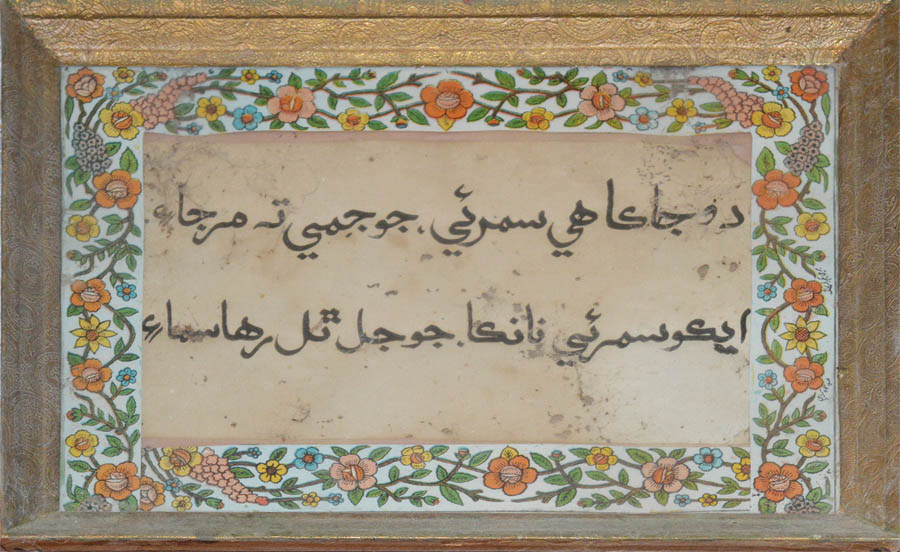 دوجا ڪاهي سمرئي، جو جمي ته مرجاءِ
ايڪو سمرئي نانڪا، جو جل ٿل رها سماءِ